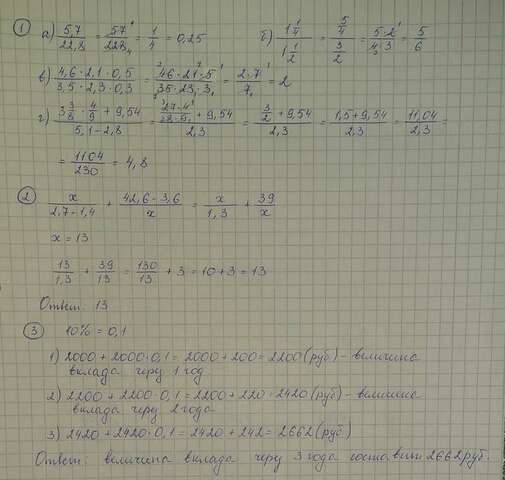 1 а) 5,7/22,8 = 57/228 = 1/4 = 0,25 б) 1 1/4 / 1 1/2 = 5/4 / 3/2 = 5·2/4·3 = 5/6
в) 4,6·2,1·0,5/3,5·2,3·0,3 = 46·21·5/35·23·3 = 2·7/7 = 2
г) 3 3/8 · 4/9 + 9,54 / 5,1-2,8 = 27·4/8·9 + 9,54 / 2,3 = 3/2 + 9,54 / 2,3 = 1,5+9,54/2,3 = 11,04/2,3 =
= 1104/230 = 4,8
2 x/2,7-1,4 + 42,6-3,6/x = x/1,3 + 39/x
x = 13
13/1,3 + 39/13 = 130/13 + 3 = 10+3 = 13
Ответ: 13
3 10% = 0,1
1) 2000 + 2000·0,1 = 2000 + 200 = 2200 (руб) - величина
вклада через 1 год.
2) 2200 + 2200·0,1 = 2200 + 220 = 2420 (руб) - величина
вклада через 2 года
3) 2420 + 2420·0,1 = 2420 + 242 = 2662 (руб)
Ответ: величина вклада через 3 года составит 2662 руб.